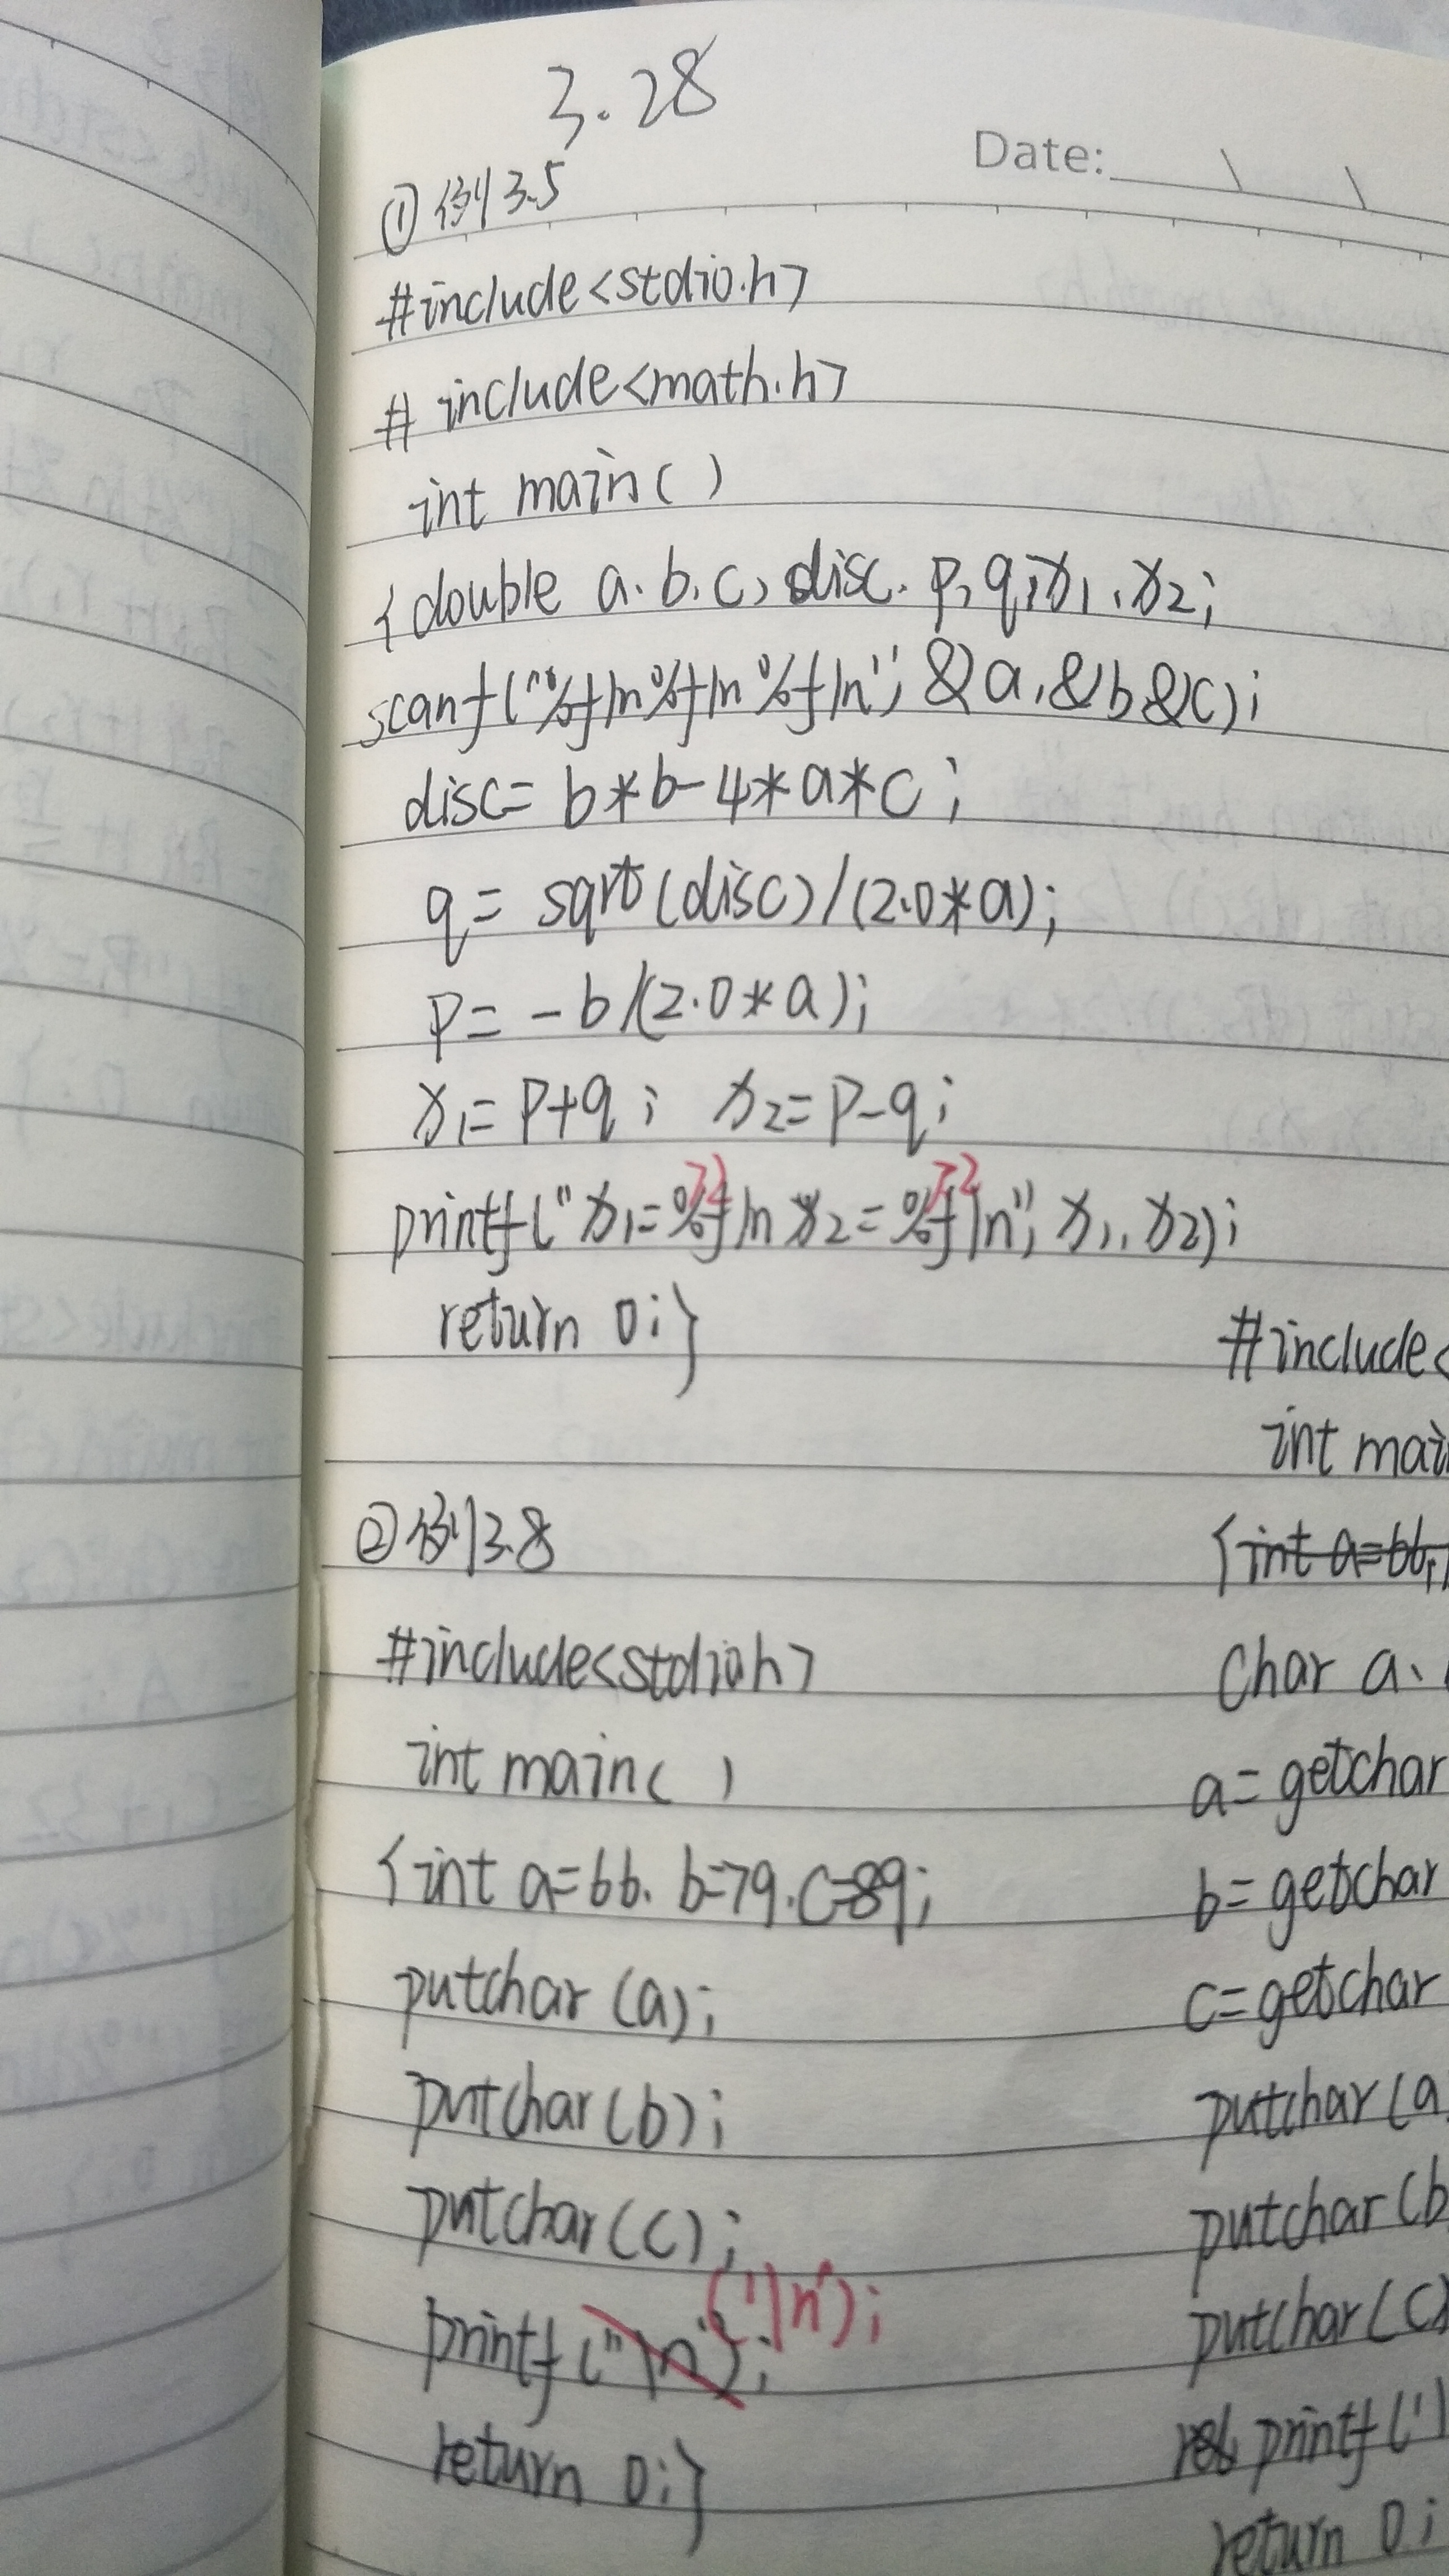 3.28
Date:
①例3.5
#include<stdio.h>
# include<math.h>
int main( )
{double a.b.c, disc. p, q, x1, x2;
scanf("%f\n%f\n%f\n", &a,&b&c);
disc= b*b-4*a*c;
q= sqrt(disc)/(2.0*a);
p= -b/(2.0*a);
x1= p+q; x2= p-q;
7.2 7.2
printf("x1=%f\n x2=%f\n", x1, x2);
return 0;}
②例3.8
#include<stdio.h>
int main( )
{int a=66. b=79.c=89;
putchar(a);
putchar(b);
putchar(c);
('\n');
printf("\n");
return 0;}
#include<
int mai
{int a=66,
char a、
a= getchar
b= getchar
c= getchar
putchar(a
putchar(b
putchar(c)
printf('\
return 0;